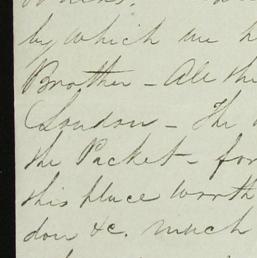 by which we h
Brother - All the
London - The
the Packet - for
this place worth
don &c. much